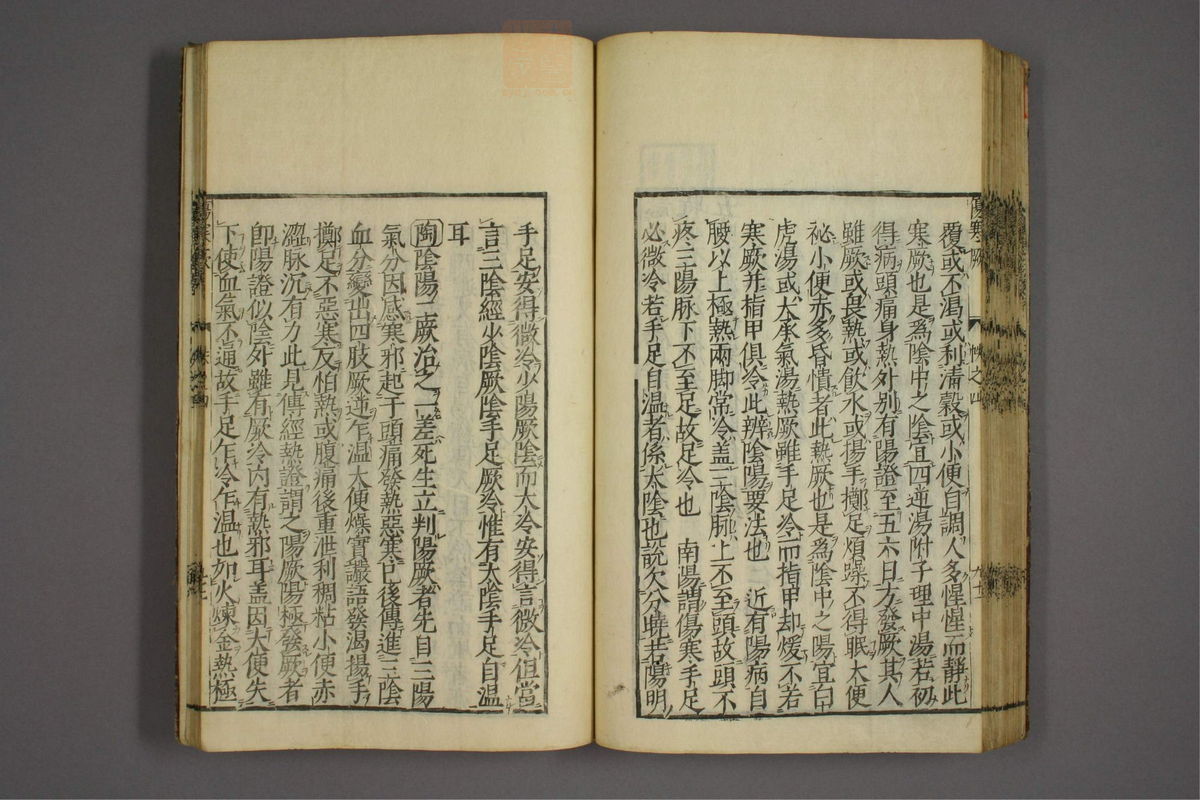 覆或不渴或利清穀或小便自調人多惺惺而靜此
寒厥也是爲陰中之陰宜四逆湯附子理中湯若初
得病頭痛身熱外別有陽證至五六日方發厥其人
雖厥或畏熱或飲水或揚手擲足煩躁不得眠大便
祕小便赤多昏憒者此熱厥也是爲陰中之陽宜白
虎湯或大承氣湯熱厥雖手足冷而指甲却煖不若
寒厥并指甲俱冷此辨陰陽要法也 近有陽病自
腰以上極熱兩脚常冷盖三陰脉上不至頭故頭不
疼三陽脉下不至足故足冷也 南陽謂傷寒手足
必微冷若手足自温者係太陰也説欠分曉若陽明
手足安得微冷少陽厥陰而大冷安得言微冷但當
言三陰經少陰厥陰手足厥冷惟有太陰手足自温
耳
陶陰陽二厥治之一差死生立判陽厥者先自三陽
氣分因感寒邪起于頭痛發熱惡寒已後傳進三陰
血分變出四肢厥逆乍温大便燥實譫語發渴揚手
擲足不惡寒反怕熱或腹痛後重泄利稠粘小便赤
澀脉沉有力此見傳經熱證謂之陽厥陽極發厥者
卽陽證似陰外雖有厥冷内有熱邪耳盖因大便失
下使血氣不通故手足乍冷乍温也如火煉金熱極